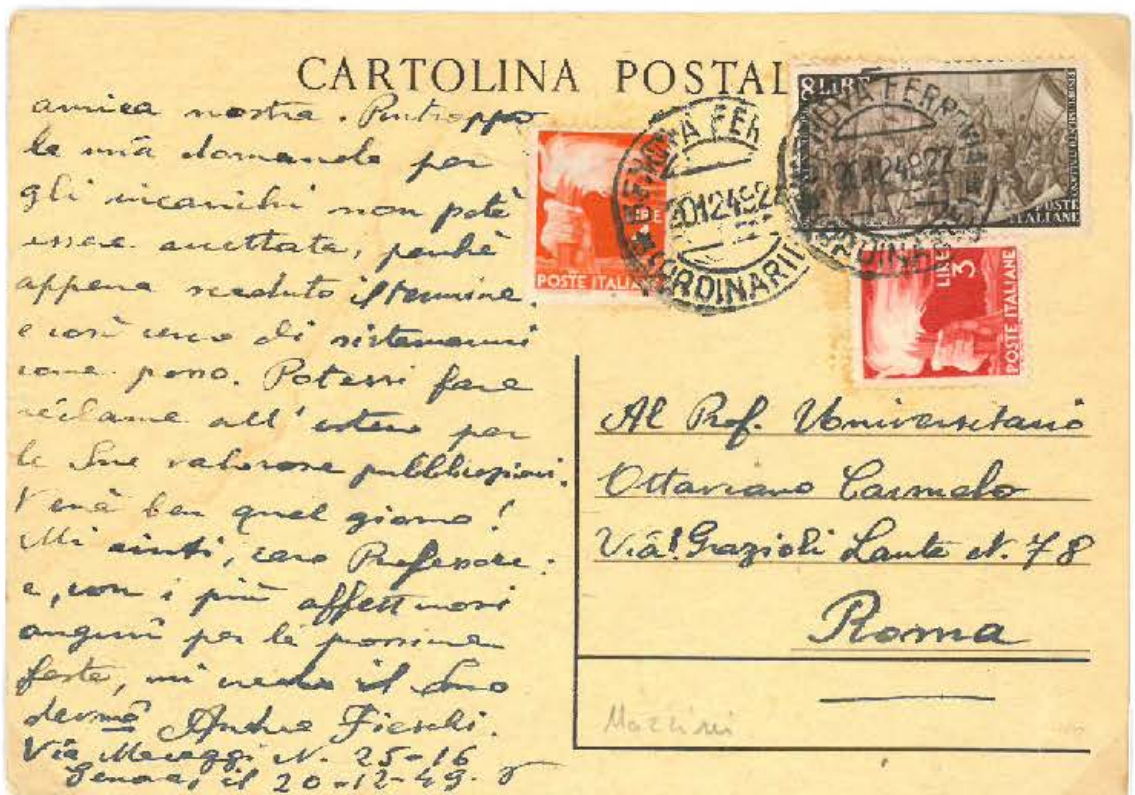 CARTOLINA POSTAL
amica nostra. Purtroppo
la mia domanda per
gli incarichi non poté
essere accettata, perché
appena scaduto il termine.
e così cerco di sistemarmi
come posso. Potessi fare
réclame all'estero per
le Sue valorose pubblicazioni.
Verrà ben quel giorno!
Mi aiuti, caro Professore:
e, con i più affettuosi
auguri per le prossime
feste, mi creda il Suo
devmo Andrea Fieschi.
Via Maraggi N. 25-16
Genova, il 20-12-49.
LIRE
POSTE ITALI
GENOVA FER
20.12.49.22
ORDINARIE
8 LIRE
POSTE
ITALIANE
GENOVA FERROVIA
20.12.49.22
ORDINARIE
LIRE 3
POSTE ITALIANE
Al Prof. Universitario
Ottaviano Carmelo
Via Grazioli Lante N. 78
Roma
Mazzini